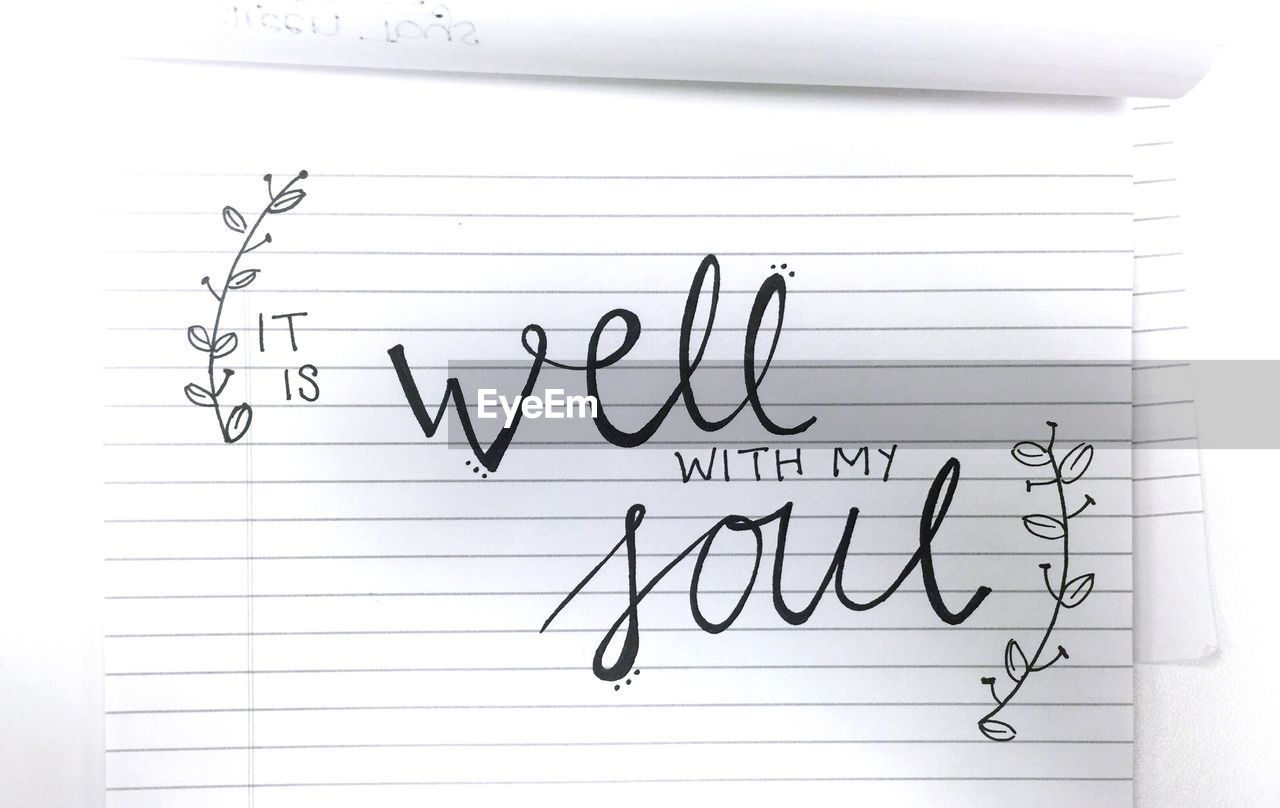 IT
IS
well
EyeEm
WITH MY
soul